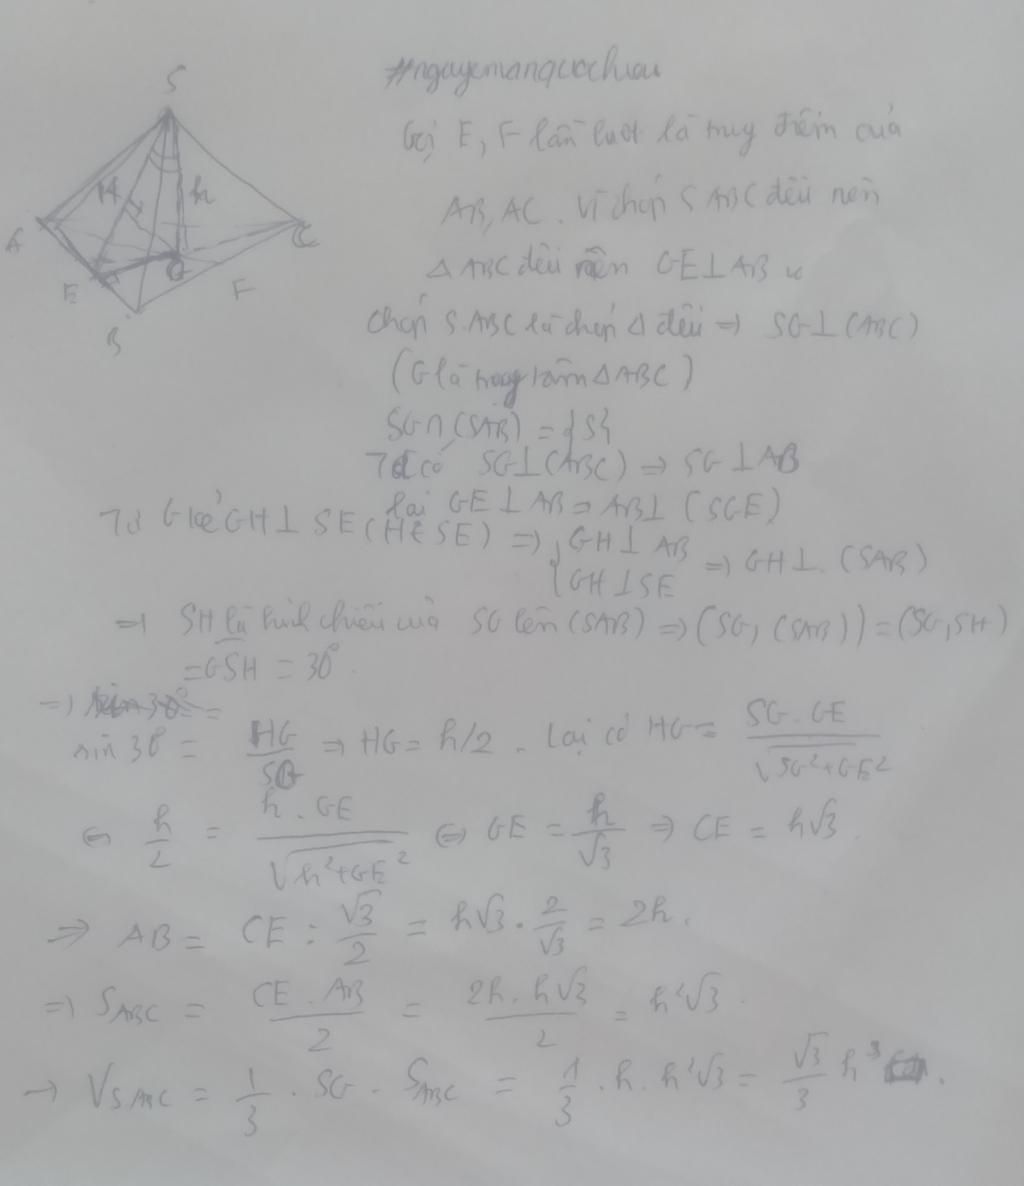 S
H
h
A
G
C
E
F
B
#nguyemanquochieu
Gọi E, F lần lượt là truy điểm của
AB, AC. Vì chóp S ABC đều nên
Δ ABC đều nên GE⊥AB
Chóp S.ABC là chóp Δ đều ⇒ SG⊥(ABC)
(G là trọng tâm ΔABC)
SG∩(SAB) = {S}
Ta có SG⊥(ABC) ⇒ SG⊥AB
lại GE⊥AB ⇒ AB⊥(SGE)
Từ G kẻ GH⊥SE (H∈SE) ⇒ { GH⊥AB
GH⊥SE ⇒ GH⊥(SAB)
⇒ SH là hình chiếu của SG lên (SAB) ⇒ (SG, (SAB)) = (SG, SH)
= GSH = 30°.
⇒ sin 30° =
sin 30 = HG/SG ⇒ HG = h/2. Lại có HG = SG.GE/√(SG²+GE²)
⇔ h/2 = h.GE/√(h²+GE²) ⇔ GE = h/√3 ⇒ CE = h√3.
⇒ AB = CE : √3/2 = h√3 . 2/√3 = 2h.
⇒ S_ABC = CE.AB/2 = 2h.h√3/2 = h²√3.
→ V_SABC = 1/3 . SG . S_ABC = 1/3 . h . h²√3 = √3/3 h³.